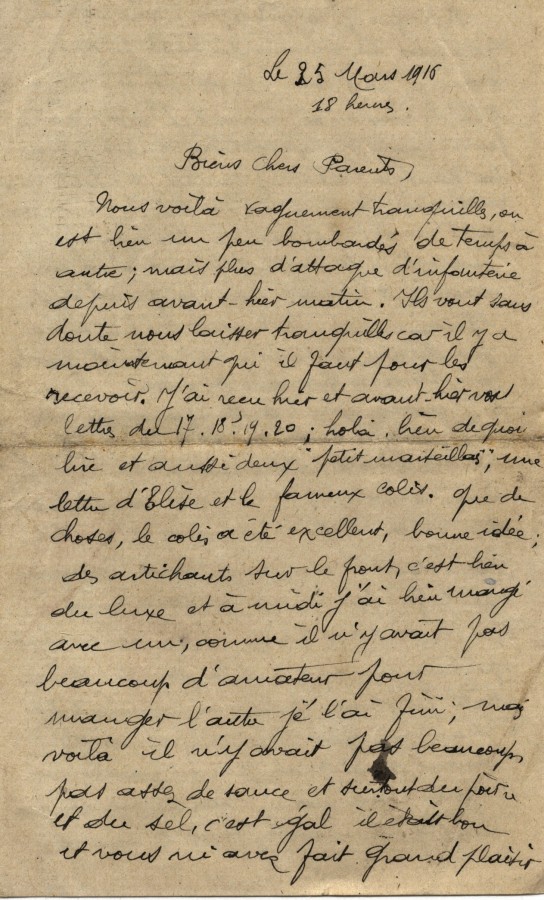 Le 25 Mars 1916
18 heures.
Biens chers Parents,
Nous voilà vaguement tranquilles, on
est bien un peu bombardés de temps à
autre ; mais plus d'attaque d'infanterie
depuis avant-hier matin. Ils vont sans
doute nous laisser tranquilles car il y a
maintenant qui il faut pour les
recevoir. J'ai reçu hier et avant-hier vos
lettres du 17. 18. 19. 20 ; holà, bien de quoi
lire et aussi deux "petit marseillais", une
lettre d'Elise et le fameux colis. Que de
choses, le colis a été excellent, bonne idée ;
des artichauts sur le front, c'est bien
du luxe et à midi j'ai bien mangé
avec un, comme il n'y avait pas
beaucoup d'amateur pour
manger l'autre je l'ai fini ; mais
voilà il n'y avait pas beaucoup,
pas assez de sauce et surtout du poivre
et du sel, c'est égal il était bon
et vous m'avez fait grand plaisir